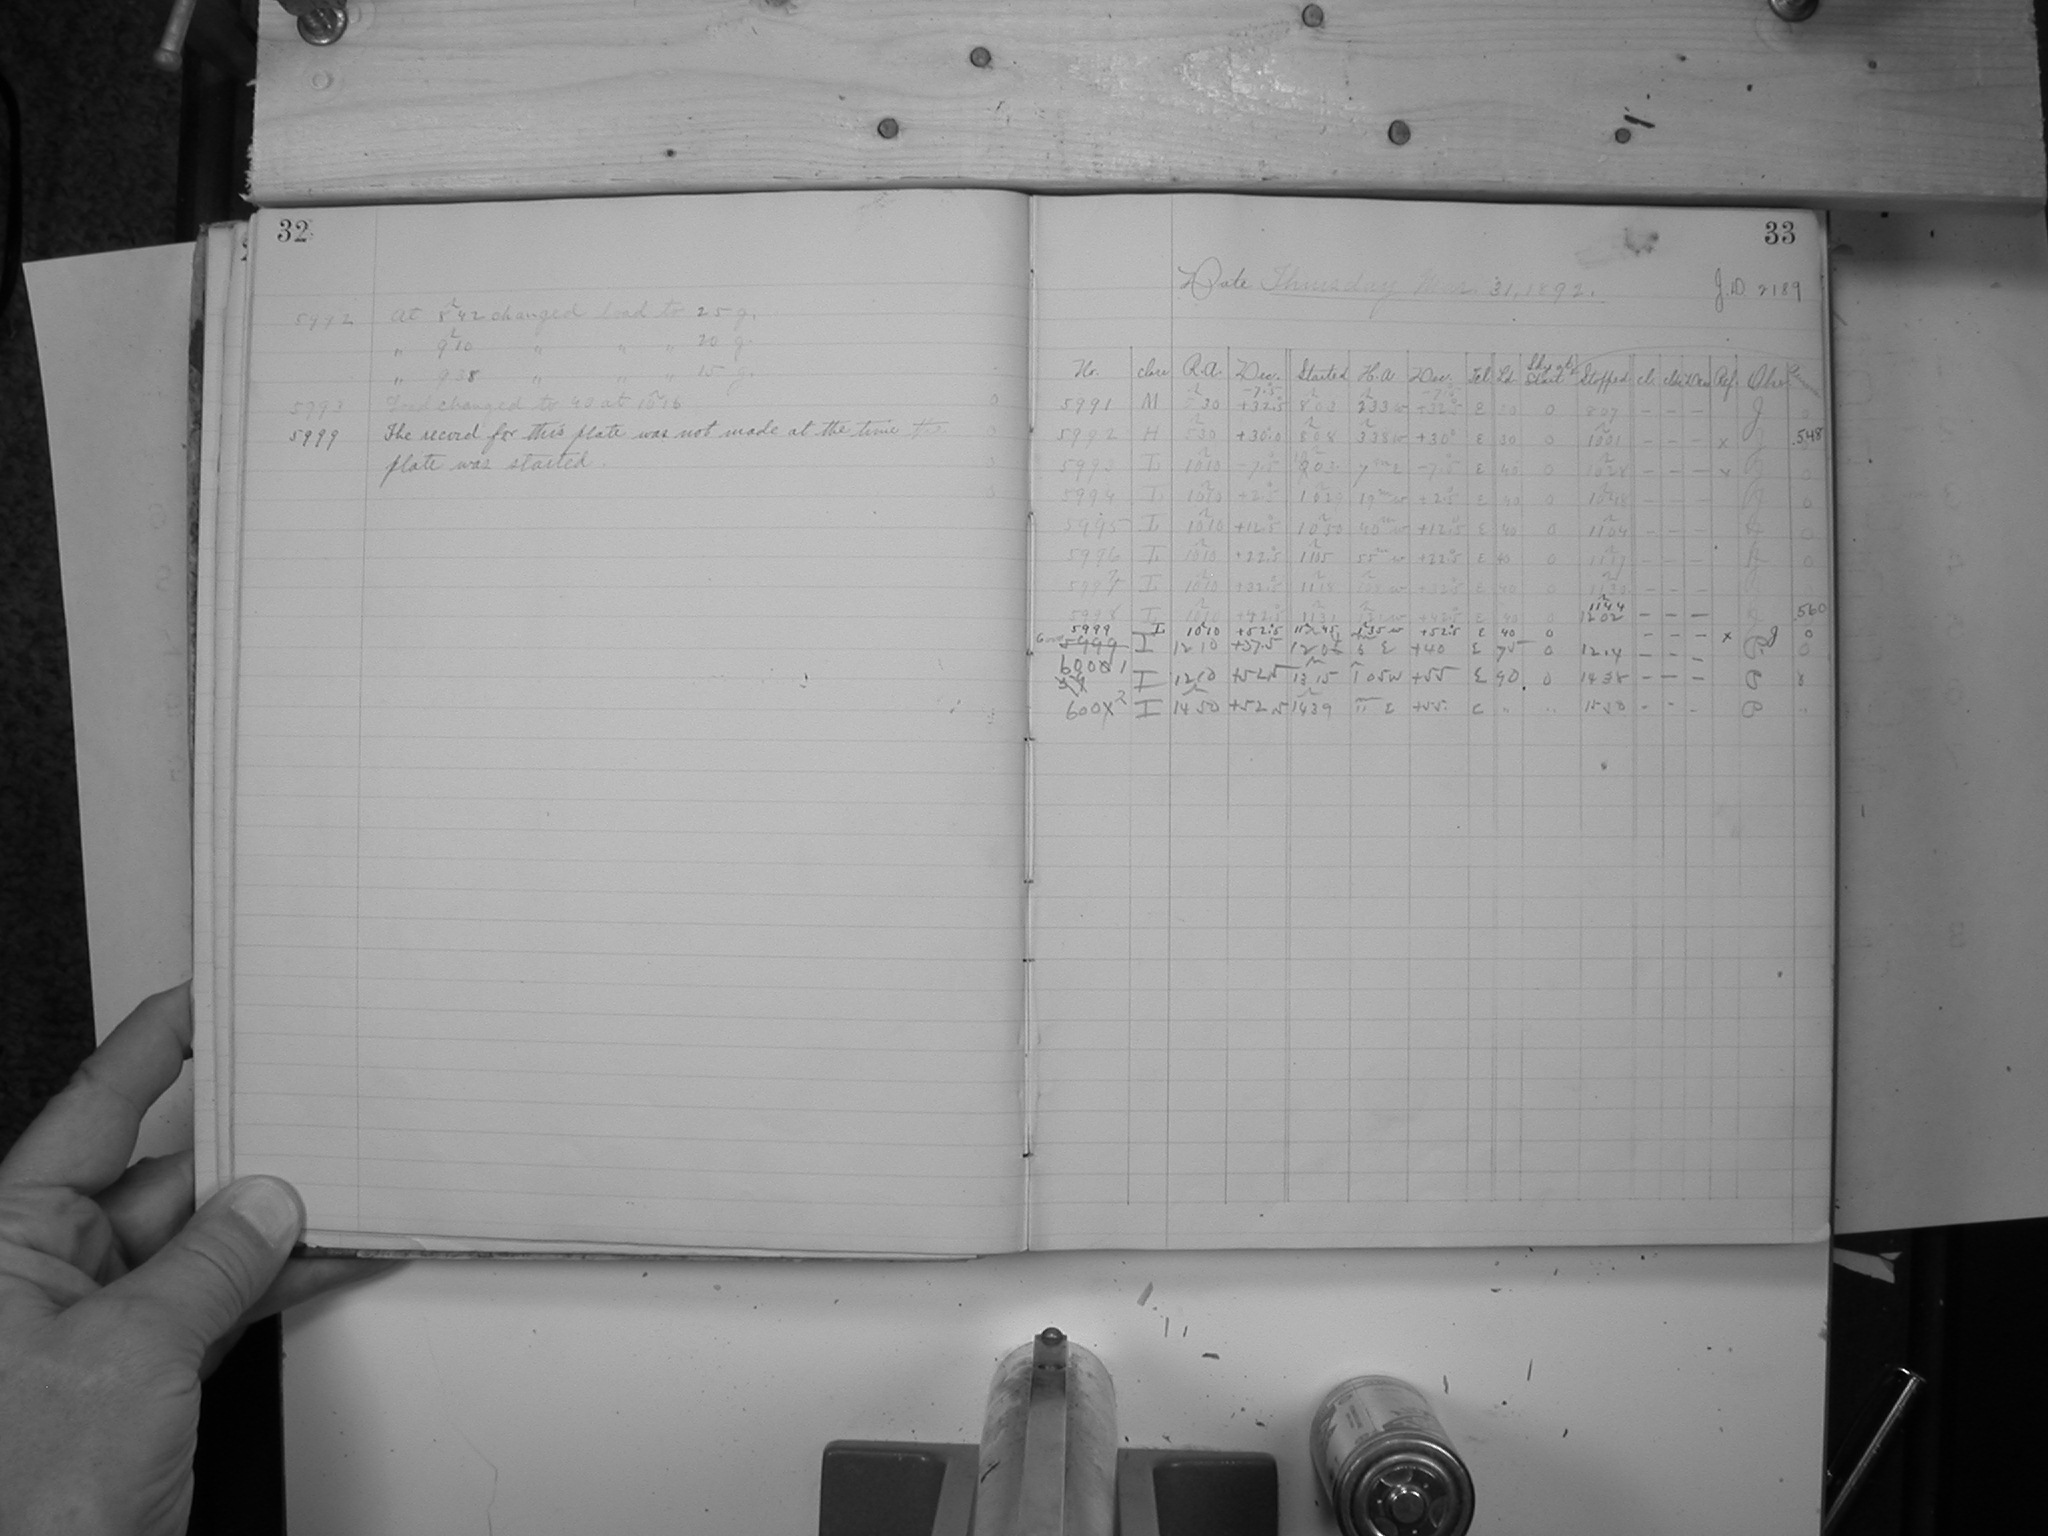 32
5992 At 8h42 changed load to 25 g.
" 9h10 " " " 20 g.
" 938 " " " 15 g.
5993 Load changed to 40 at 10h16
5999 The record for this plate was not made at the time the
plate was started.
33
Date Thursday Mar. 31, 1892. J.D. 2189
No. class R.A. Dec. Started H.A. Dec. Tel. Ld. Sky at Start Stopped cl. Dec. Ref. Obs.
-7.5 -7.5
5991 M 30 +32.5 803 233 w +32.5 E 30 0 807 - - - J 0
5992 H 530 +30.0 808 338 w +30 E 30 0 1001 - - - x J .548
5993 I 1010 -7.5 1003 7m E -7.5 E 40 0 1028 - - - x J 0
5994 I 1010 +2.5 1029 19m w +2.5 E 40 0 1048 - - - J 0
5995 I 1010 +12.5 1050 40m w +12.5 E 40 0 1104 - - - 0
5996 I 1010 +22.5 1105 55m w +22.5 E 40 0 1117 - - - 0
5997 I 1010 +32.5 1118 w +32.5 E 40 0 - - - 0
1144
5998 I 1010 +42.5 1131 w +42.5 E 40 0 1202 - - - J .560
5999 I 1010 +52.5 1145 135 w +52.5 E 40 0 - - - x J 0
5999 I 1210 +37.5 120 E +40 E 75 0 1214 - - - P 0
6001 I 1210 +52.5 1315 1 05 w +55 E 90 0 1438 - - - P
6002 I 1450 +52.5 1439 11 E +55 E " " 1530 - - - P "